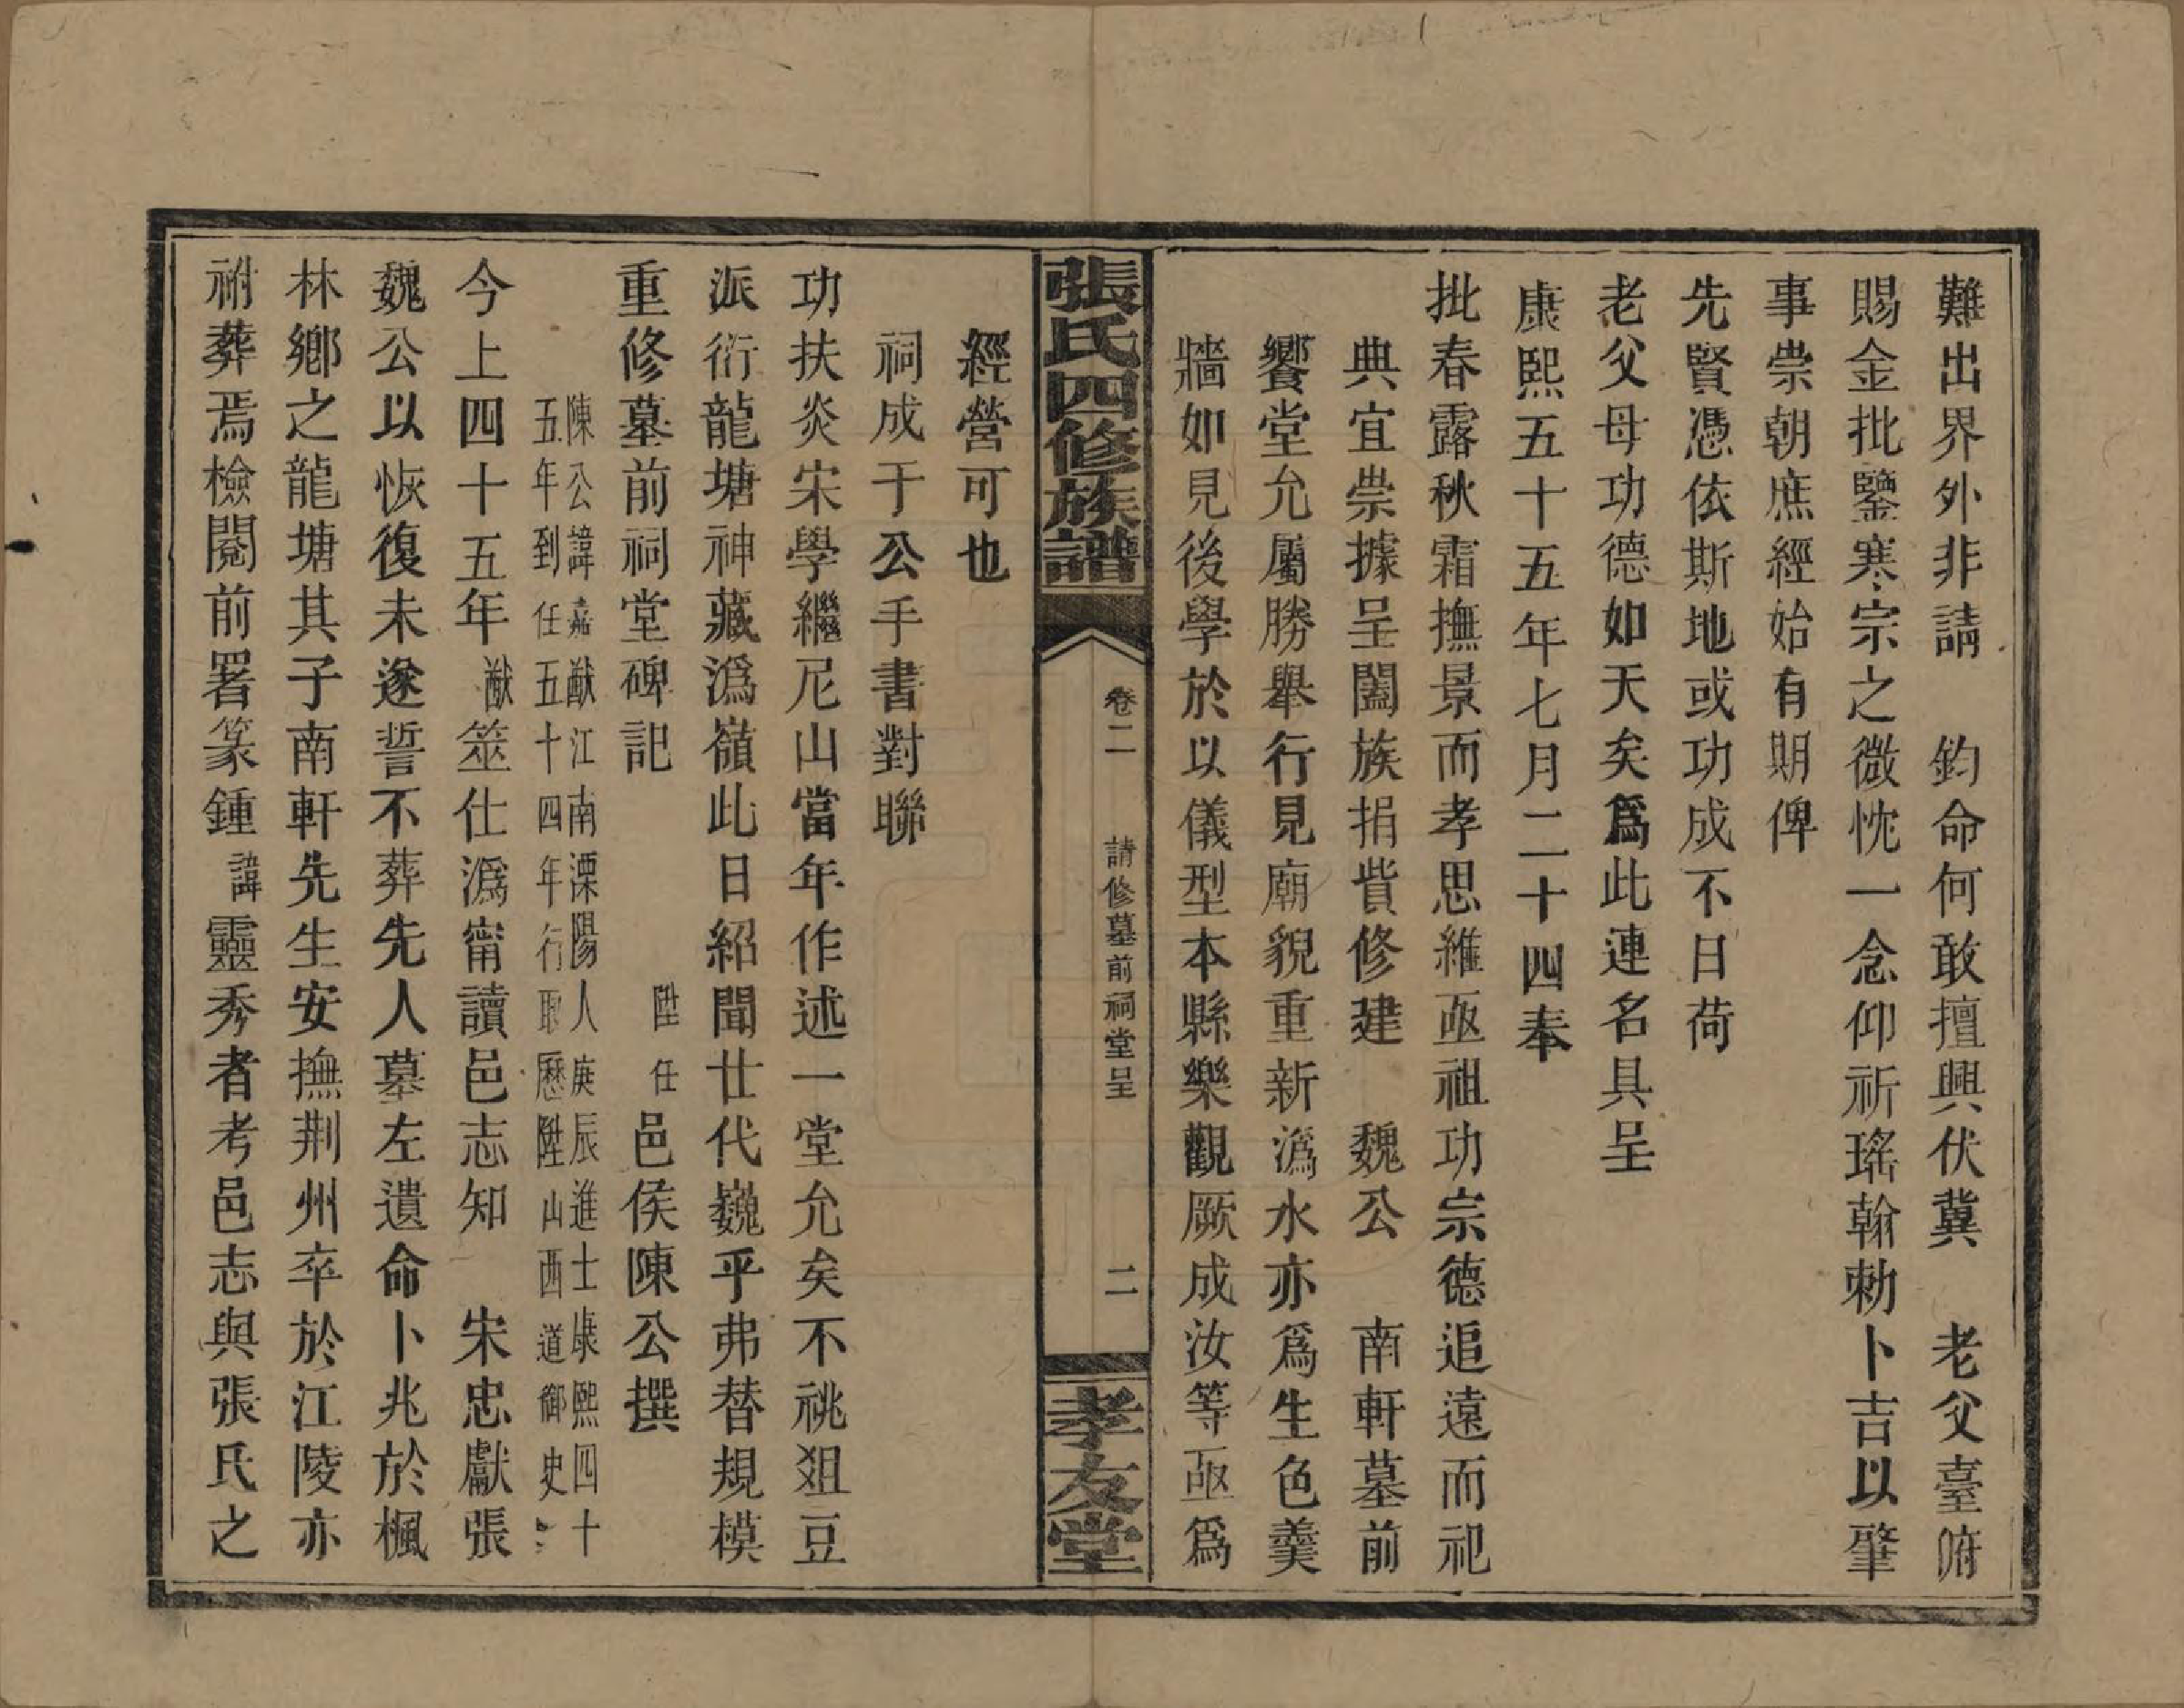 難出界外非請　鈞命何敢擅興伏冀　老父臺俯
賜金批鑒寒宗之微忱一念仰祈瑤翰勅卜吉以肇
事崇朝庶經始有期俾
先賢憑依斯地或功成不日荷
老父母功德如天矣爲此連名具呈
康熙五十五年七月二十四奉
批春露秋霜撫景而孝思維亟祖功宗德追遠而祀
典宜崇據呈闔族捐貲修建　魏公　南軒墓前
饗堂允屬勝舉行見廟貌重新潙水亦爲生色羹
牆如見後學於以儀型本縣樂觀厥成汝等亟爲
張氏四修族譜
卷二
請修墓前祠堂呈
二
孝友堂
經營可也
祠成于公手書對聯
功扶炎宋學繼尼山當年作述一堂允矣不祧俎豆
派衍龍塘神藏潙嶺此日紹聞廿代巍乎弗替規模
重修墓前祠堂碑記　陞任邑侯陳公撰
陳公諱嘉猷江南溧陽人庚辰進士康熙四十
五年到任五十四年行取歷陞山西道御史
今上四十五年猷筮仕潙甯讀邑志知　宋忠獻張
魏公以恢復未遂誓不葬先人墓左遺命卜兆於楓
林鄉之龍塘其子南軒先生安撫荆州卒於江陵亦
祔葬焉檢閱前署篆鍾諱靈秀者考邑志與張氏之